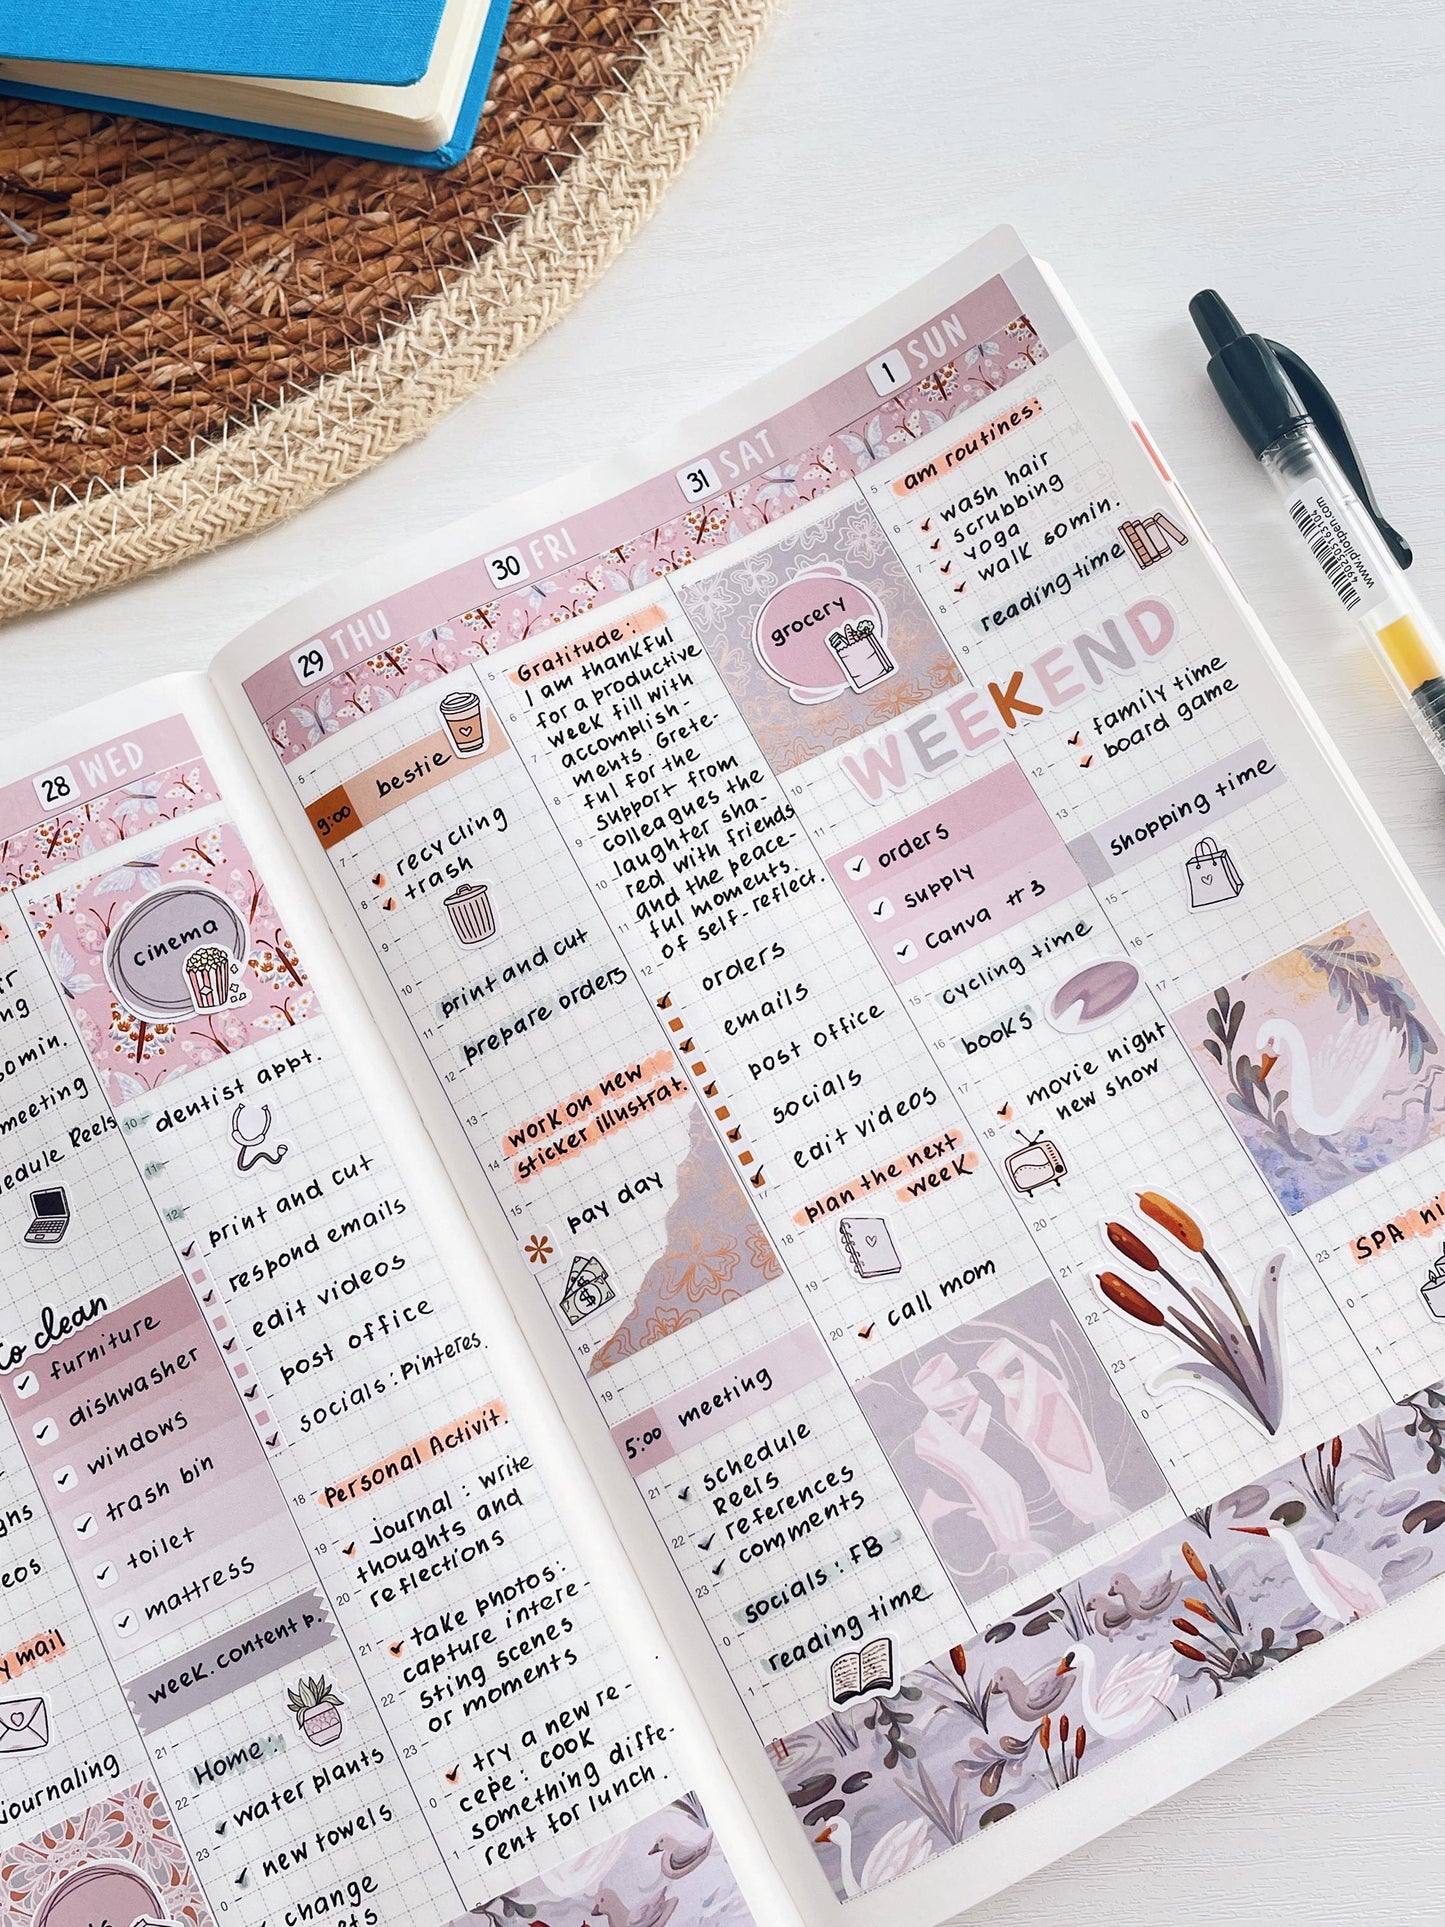 28 WED
60min.
meeting
Reels
to clean
furniture
dishwasher
windows
trash bin
toilet
mattress
week. content p.
mail
journaling
Home:
water plants
new towels
change
cinema
dentist appt.
print and cut
respond emails
edit videos
post office
socials: Pinteres.
Personal Activit.
journal: write
thoughts and
reflections
take photos:
capture intere-
sting scenes
or moments
try a new re-
cepe: cook
something diffe-
rent for lunch.
29 THU
9:00 bestie
recycling
trash
print and cut
prepare orders
work on new
sticker illustrat.
pay day
5:00 meeting
schedule
Reels
references
comments
socials: FB
reading time
30 FRI
Gratitude:
I am thankful
for a productive
week fill with
accomplish-
ments. Grete-
ful for the
support from
colleagues the
laughter sha-
red with friends
and the peace-
ful moments.
of self-reflect.
orders
emails
post office
socials
edit videos
plan the next
week
call mom
31 SAT
grocery
WEEKEND
orders
supply
canva #3
cycling time
books
movie night
new show
1 SUN
am routines:
wash hair
scrubbing
yoga
walk 60min.
reading time
family time
board game
shopping time
SPA ni
4902505163104
www.pilotpen.com